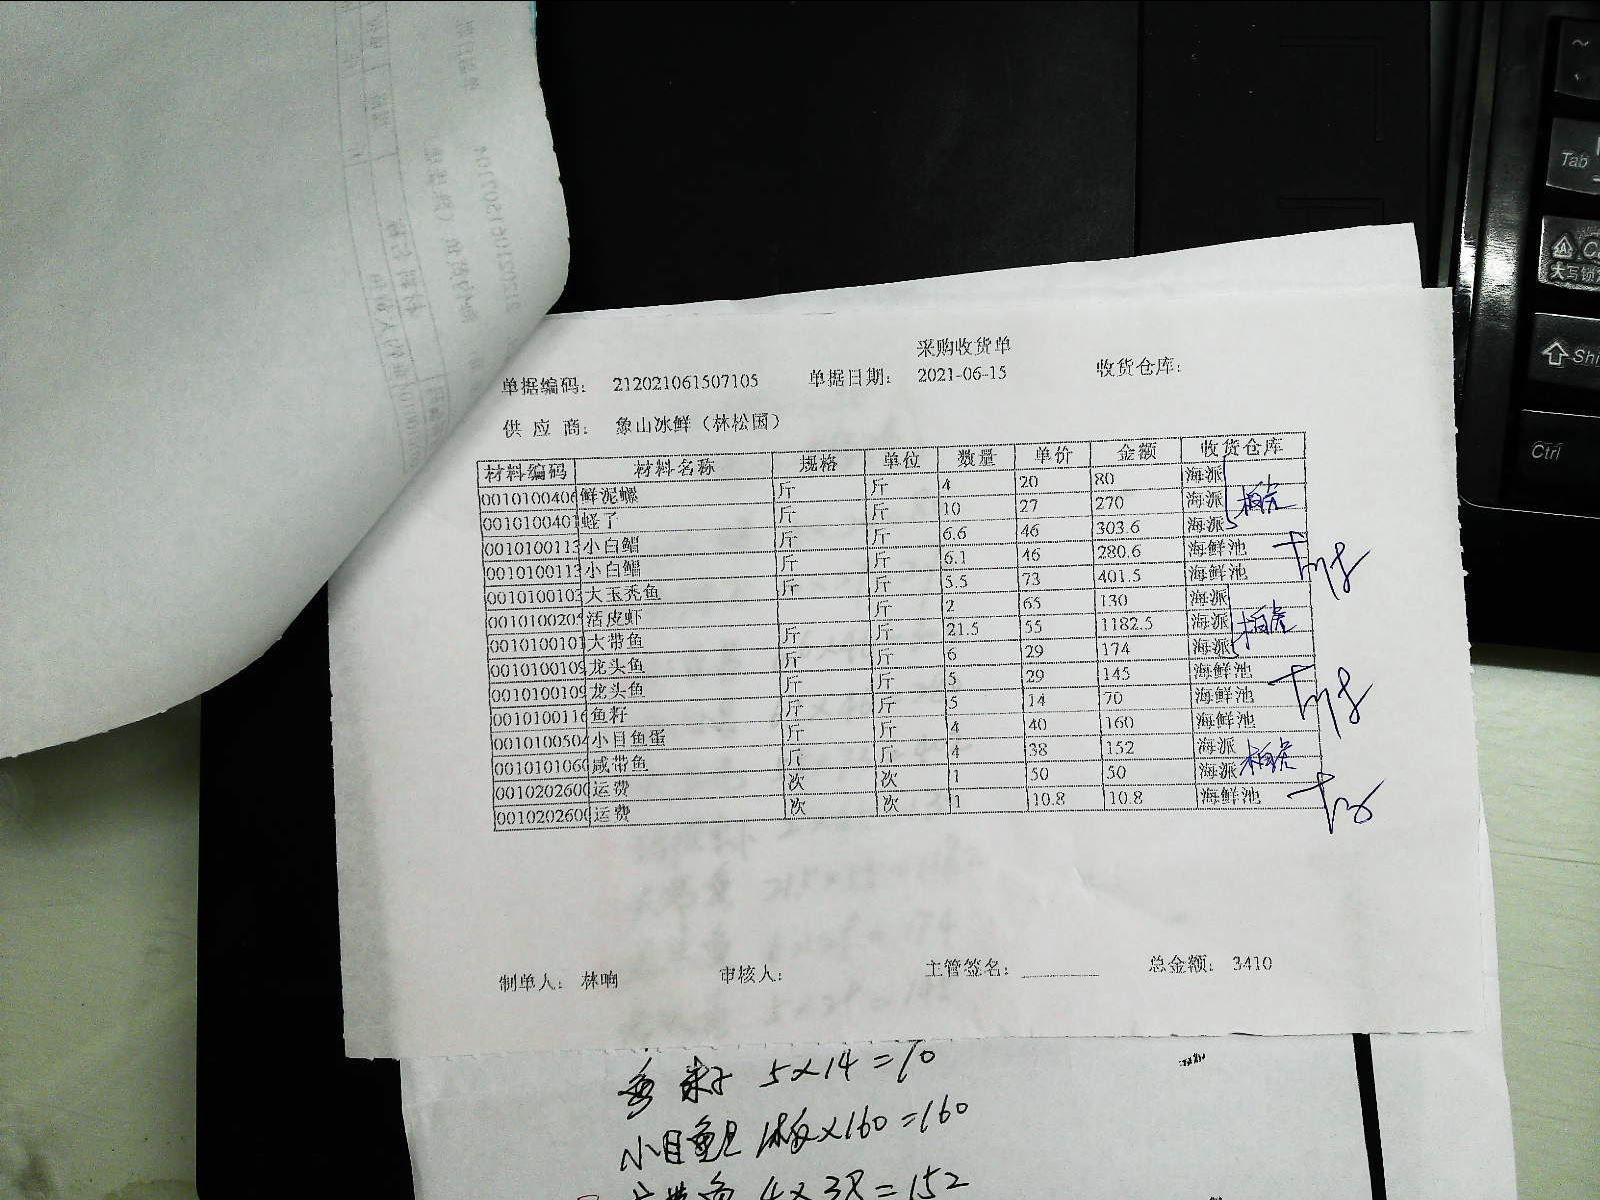 采购收货单
单据编码： 212021061507105 单据日期： 2021-06-15 收货仓库：
供 应 商： 象山冰鲜（林松国）
材料编码 材料名称 规格 单位 数量 单价 金额 收货仓库
0010100406 鲜泥螺 斤 斤 4 20 80 海派
001010040 蛏子 斤 斤 10 27 270 海派
0010100113 小白鲳 斤 斤 6.6 46 303.6 海派
0010100113 小白鲳 斤 斤 6.1 46 280.6 海鲜池
0010100103 大玉秃鱼 斤 斤 5.5 73 401.5 海鲜池
001010020 活皮虾 斤 2 65 130 海派
001010010 大带鱼 斤 斤 21.5 55 1182.5 海派
0010100109 龙头鱼 斤 斤 6 29 174 海派
0010100109 龙头鱼 斤 斤 5 29 145 海鲜池
0010100116 鱼籽 斤 斤 5 14 70 海鲜池
0010100504 小目鱼蛋 斤 斤 4 40 160 海鲜池
0010101060 咸带鱼 斤 斤 4 38 152 海派
0010202600 运费 次 次 1 50 50 海派
0010202600 运费 次 次 1 10.8 10.8 海鲜池
制单人： 林响 审核人： 主管签名： 总金额： 3410
5×14=70
小目鱼旦 1板×160=160
4×38=152
Tab
大写锁
Shi
Ctrl